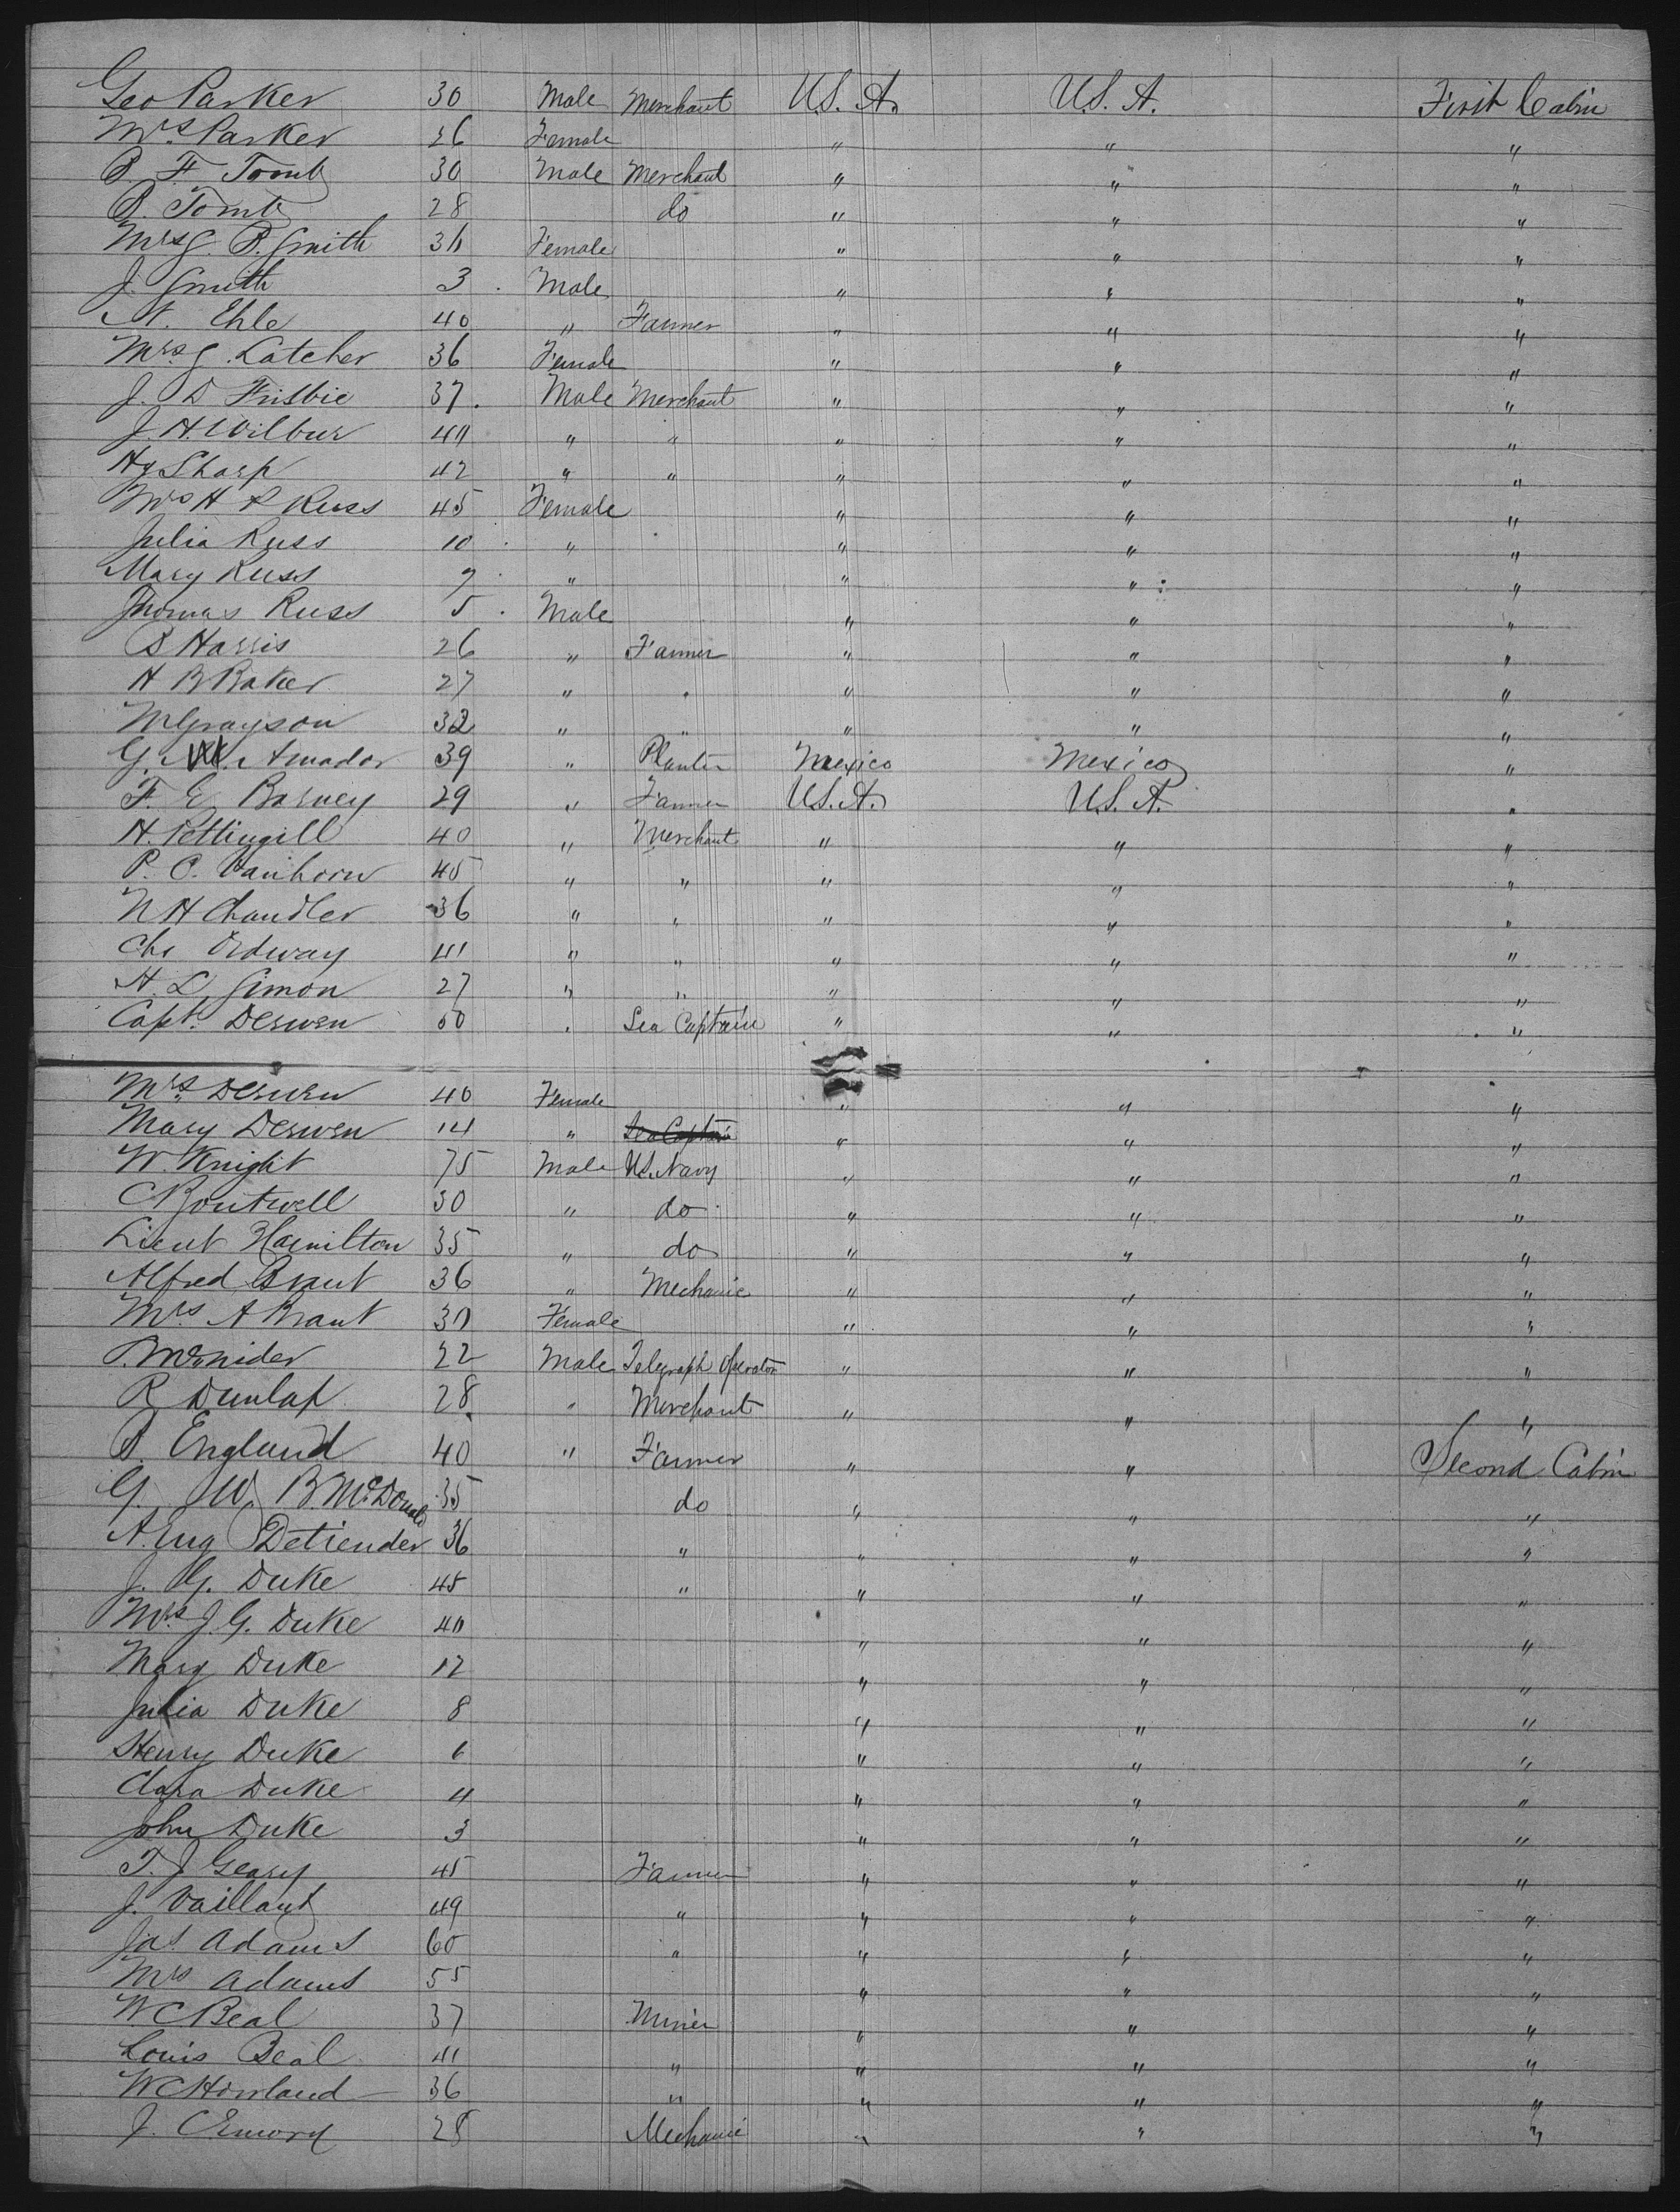 Geo Parker 30 Male Merchant U.S. A. U.S. A. First Cabin
Mrs Parker 26 Female " " "
B. F. Tomb 30 Male Merchant " " "
B. Tomb 28 do " " "
Mrs G. B. Smith 30 Female " " "
J. Smith 3 Male " " "
N. Ehle 40 " Farmer " " "
Mrs G. Latcher 36 Female " " "
J. D Frisbie 37 Male Merchant " " "
J. H. Wilbur 40 " " " " "
Hy Sharp 42 " " " " "
Mrs H P Russ 45 Female " " "
Julia Russ 10 " " " "
Mary Russ 7 " " " "
Thomas Russ 5 Male " " "
B Harris 26 " Farmer " " "
H B Baker 27 " " " " "
M Grayson 32 " " " " "
G. Amador 39 " Planter Mexico Mexico "
F. E. Barney 29 " Farmer U.S. A. U.S. A. "
H. Pettingill 40 " Merchant " " "
P. C. Vanhorn 45 " " " " "
N H Chandler 36 " " " " "
Chs Ordway 41 " " " " "
H. L Simon 27 " " " " "
Capt. Derwen 50 " Sea Captain " " "
Mrs Derwen 40 Female " " "
Mary Derwen 14 " Sea Captain " " "
W. Knight 75 Male U.S. Navy " " "
C Boutwell 30 " do " " "
Lieut Hamilton 35 " do " " "
Alfred Brant 36 " Mechanic " " "
Mrs A Brant 30 Female " " "
McNider 22 Male Telegraph Operator " " "
R Dunlap 28 " Merchant " " "
B. England 40 " Farmer " " Second Cabin
G. W. B. McDonald 35 do " " "
A. Eug Detiender 36 " " " "
J. G. Duke 45 " " " "
Mrs J. G. Duke 40 " " "
Mary Duke 12 " " "
Julia Duke 8 " " "
Henry Duke 6 " " "
Clara Duke 4 " " "
John Duke 3 " " "
T. J Geary 45 Farmer " " "
J. Vaillant 49 " " " "
Jas Adams 60 " " " "
Mrs Adams 55 " " "
W C Beal 37 Miner " " "
Louis Beal 41 " " " "
W C Howland 36 " " " "
J. C Emory 28 Mechanic " " "